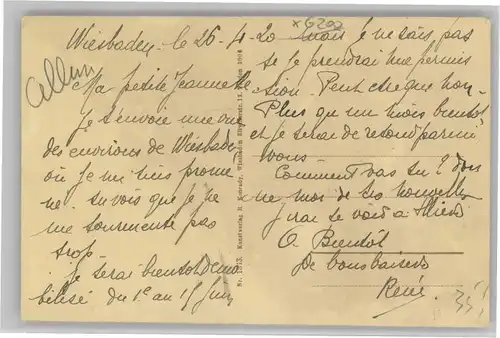 Wiesbaden le 26-4-20
Ma petite Jeannette
Je t'envoie une vue
des environs de Wiesbaden
où je me suis prome
né. tu vois que je ne
me tourmente pas
trop.
Je serai bientot démo
bilisé du 1e au 15 Juin
mais je ne sais pas
si je prendrai une permis
sion. Peut etre que non.
Plus qu'un mois bientot
et je serai de retour parmi
vous.
Comment vas tu ? don
ne moi de tes nouvelles
J'irai te voir à
A Bientôt
De bons baisers
René
Nr. 1913. Kunstverlag